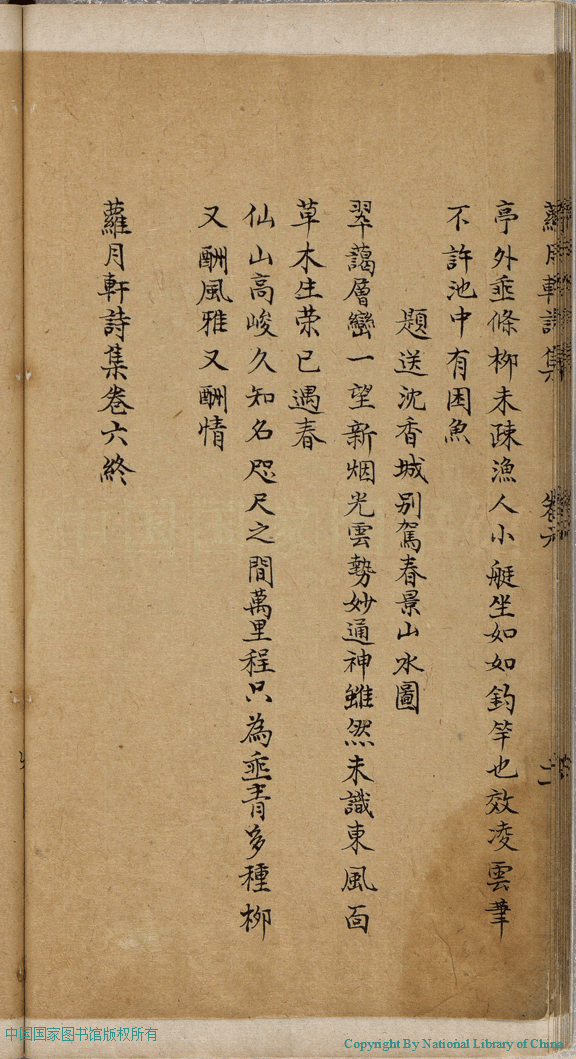 蘿月軒詩集 卷六 二
亭外垂條柳未疎漁人小艇坐如如釣竿也效凌雲筆
不許池中有困魚
題送沈香城別駕春景山水圖
翠藹層巒一望新烟光雲勢妙通神雖然未識東風面
草木生荣已遇春
仙山高峻久知名咫尺之間萬里程只為垂青多種柳
又酬風雅又酬情
蘿月軒詩集卷六終
中国国家图书馆版权所有
Copyright By National Library of China